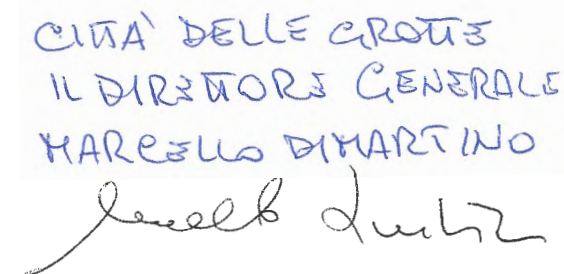 CITTÀ DELLE GROTTE
IL DIRETTORE GENERALE
MARCELLO DIMARTINO